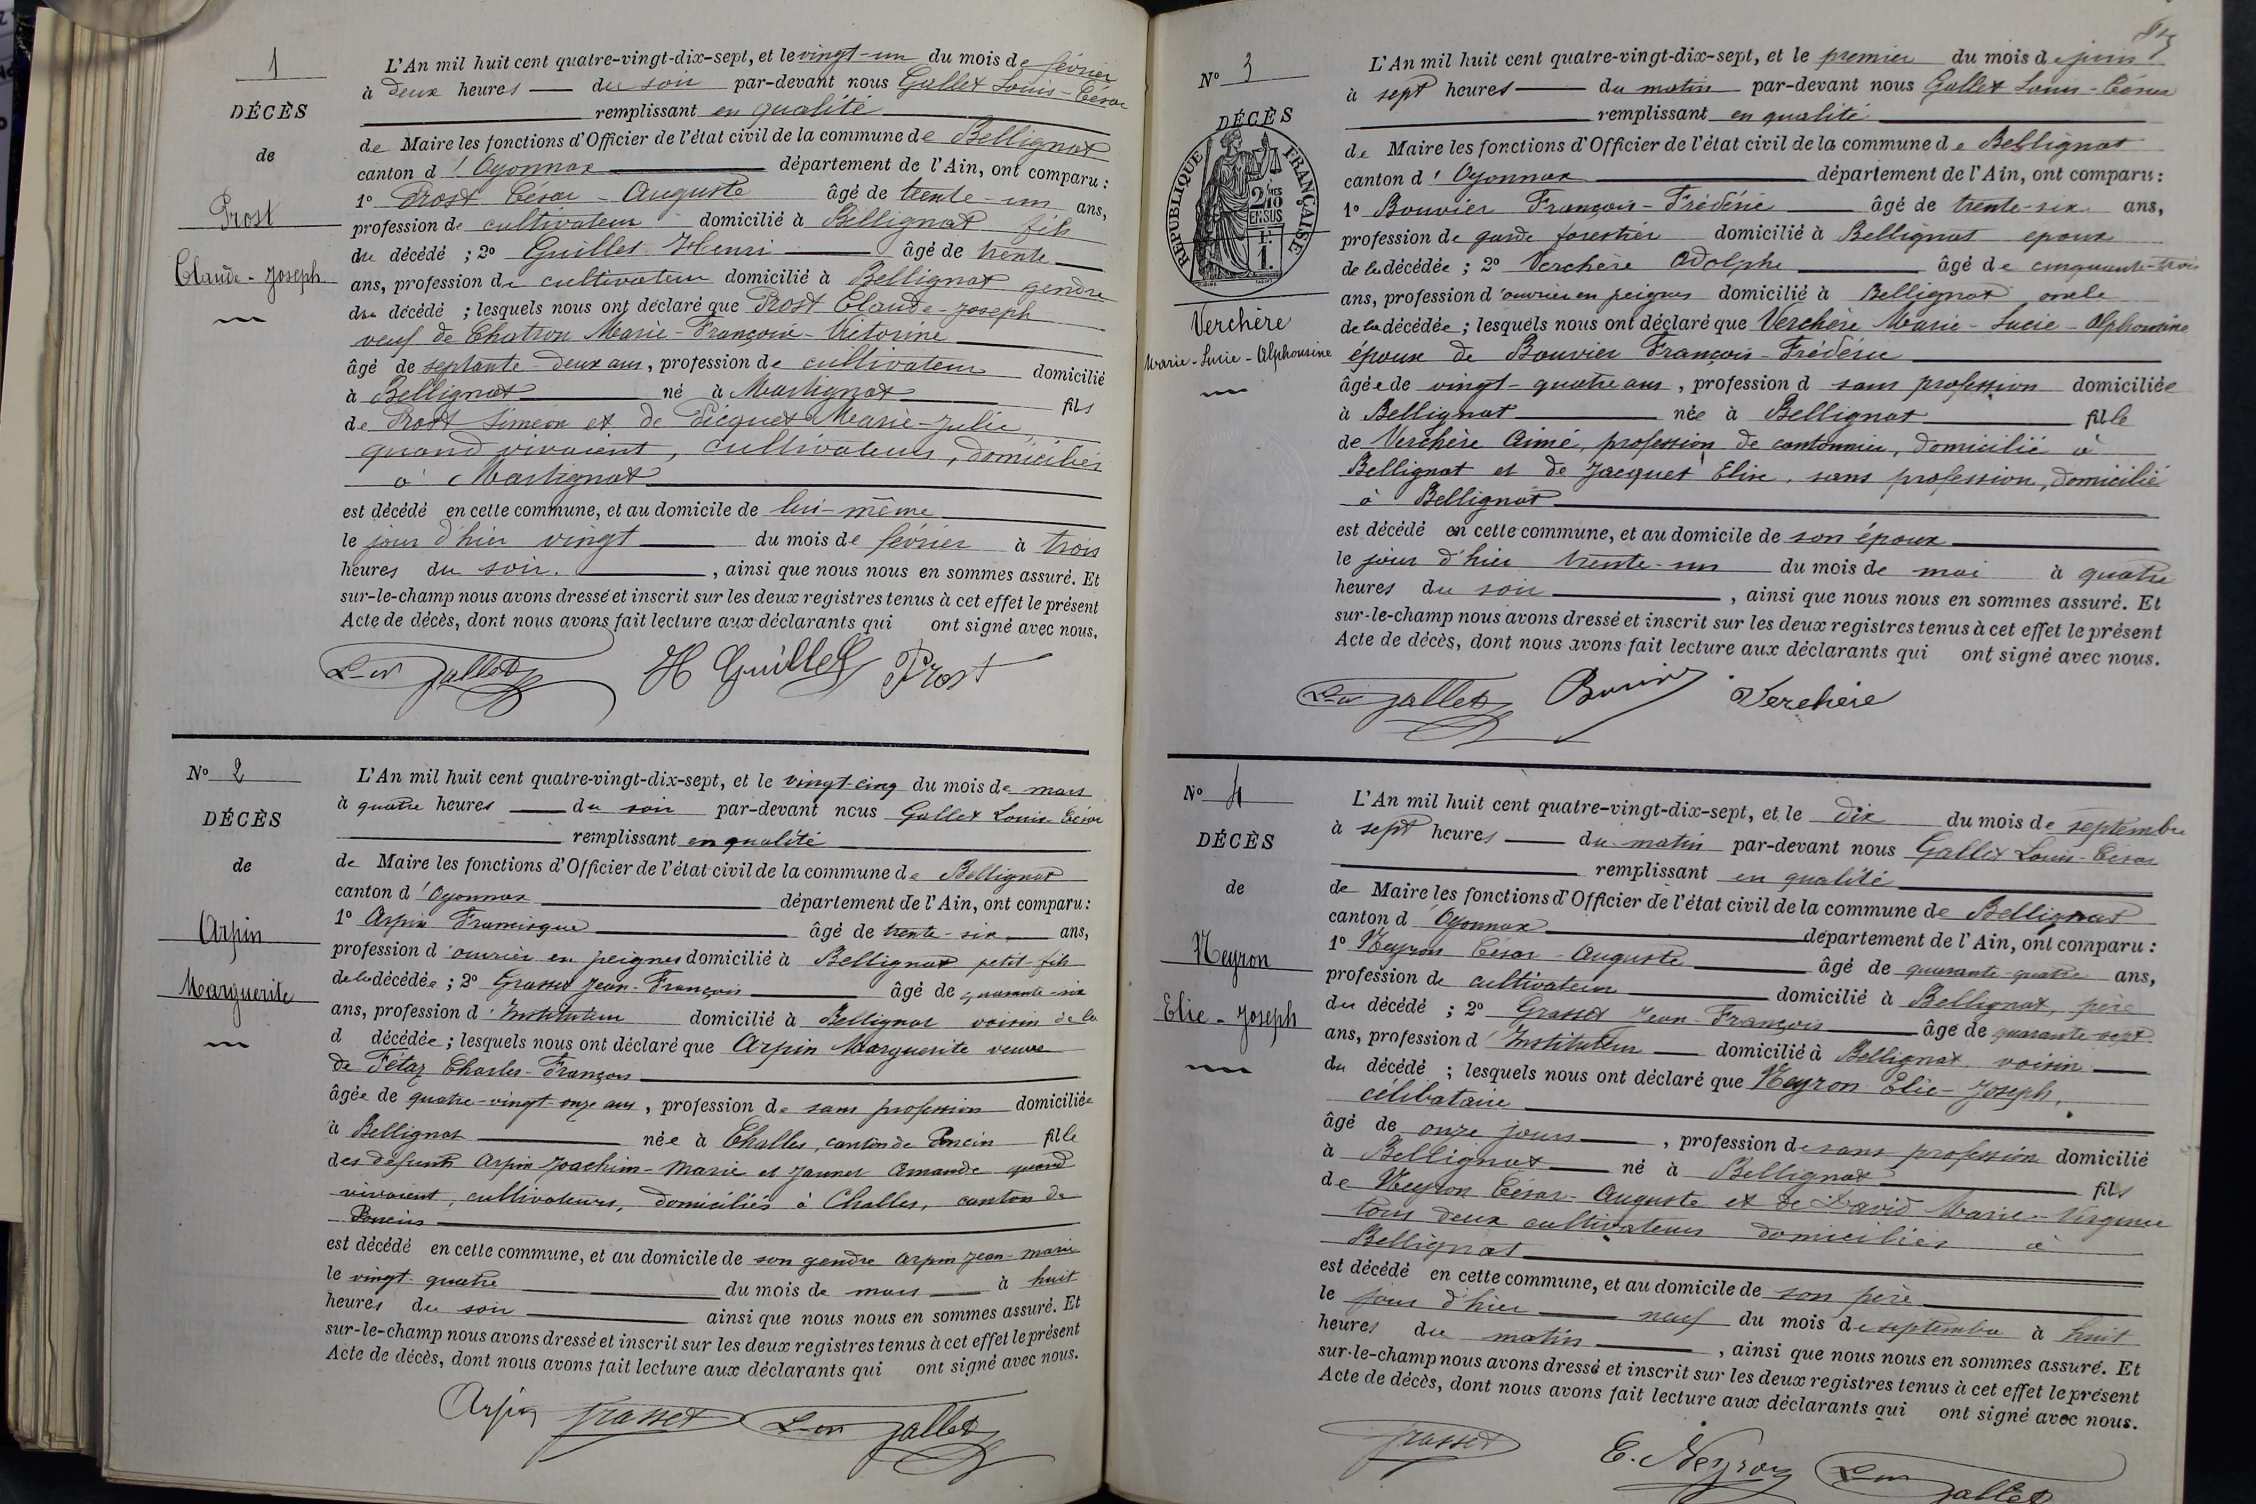 1
DÉCÈS
de
Prost
Claude-Joseph
L'An mil huit cent quatre-vingt-dix-sept, et le vingt-un du mois de février
à deux heures du soir par-devant nous Gallet Louis-César
remplissant en qualité
de Maire les fonctions d'Officier de l'état civil de la commune de Bellignat
canton d'Oyonnax département de l'Ain, ont comparu :
1º Prost César-Auguste âgé de trente-un ans,
profession de cultivateur domicilié à Bellignat fils
du décédé ; 2º Guillet Henri âgé de trente
ans, profession de cultivateur domicilié à Bellignat gendre
du décédé ; lesquels nous ont déclaré que Prost Claude-Joseph
veuf de Chatron Marie-Françoise-Victorine
âgé de septante-deux ans, profession de cultivateur domicilié
à Bellignat né à Martignat fils
de Prost Siméon et de Picquet Marie-Julie
quand vivaient, cultivateurs, domiciliés
à Martignat
est décédé en cette commune, et au domicile de lui-même
le jour d'hier vingt du mois de février à trois
heures du soir. , ainsi que nous nous en sommes assuré. Et
sur-le-champ nous avons dressé et inscrit sur les deux registres tenus à cet effet le présent
Acte de décès, dont nous avons fait lecture aux déclarants qui ont signé avec nous.
Gallet H Guillet Prost
Nº 2
DÉCÈS
de
Arpin
Marguerite
L'An mil huit cent quatre-vingt-dix-sept, et le vingt-cinq du mois de mars
à quatre heures du soir par-devant nous Gallet Louis-César
remplissant en qualité
de Maire les fonctions d'Officier de l'état civil de la commune de Bellignat
canton d'Oyonnax département de l'Ain, ont comparu :
1º Arpin Francisque âgé de trente-six ans,
profession d'ouvrier en peignes domicilié à Bellignat petit-fils
de la décédée ; 2º Grasset Jean-François âgé de quarante-six
ans, profession d'Instituteur domicilié à Bellignat voisin de la
d décédée ; lesquels nous ont déclaré que Arpin Marguerite veuve
de Fétaz Charles-François
âgée de quatre-vingt-onze ans, profession de sans profession domiciliée
à Bellignat née à Challes, canton de Poncin fille
des défunts Arpin Joachim-Marie et Jaunet Amande quand
vivaient, cultivateurs, domiciliés à Challes, canton de
Poncin
est décédé en cette commune, et au domicile de son gendre Arpin Jean-Marie
le vingt-quatre du mois de mars à huit
heures du soir ainsi que nous nous en sommes assuré. Et
sur-le-champ nous avons dressé et inscrit sur les deux registres tenus à cet effet le présent
Acte de décès, dont nous avons fait lecture aux déclarants qui ont signé avec nous.
Arpin Grasset Gallet
Nº 3
DÉCÈS
RÉPUBLIQUE FRANÇAISE
2/10 EN SUS
Verchère
Marie-Lucie-Alphonsine
L'An mil huit cent quatre-vingt-dix-sept, et le premier du mois de juin
à sept heures du matin par-devant nous Gallet Louis-César
remplissant en qualité
de Maire les fonctions d'Officier de l'état civil de la commune de Bellignat
canton d'Oyonnax département de l'Ain, ont comparu :
1º Bouvier François-Frédéric âgé de trente-six ans,
profession de garde forestier domicilié à Bellignat époux
de la décédée ; 2º Verchère Adolphe âgé de cinquante-trois
ans, profession d'ouvrier en peignes domicilié à Bellignat oncle
de la décédée ; lesquels nous ont déclaré que Verchère Marie-Lucie-Alphonsine
épouse de Bouvier François-Frédéric
âgée de vingt-quatre ans, profession d sans profession domiciliée
à Bellignat née à Bellignat fille
de Verchère Aimé, profession de cantonnier, domicilié à
Bellignat et de Jacquet Elise, sans profession, domicilié
à Bellignat
est décédé en cette commune, et au domicile de son époux
le jour d'hier trente-un du mois de mai à quatre
heures du soir , ainsi que nous nous en sommes assuré. Et
sur-le-champ nous avons dressé et inscrit sur les deux registres tenus à cet effet le présent
Acte de décès, dont nous avons fait lecture aux déclarants qui ont signé avec nous.
Gallet Bouvier Verchère
Nº 4
DÉCÈS
de
Neyron
Elie-Joseph
L'An mil huit cent quatre-vingt-dix-sept, et le dix du mois de septembre
à sept heures du matin par-devant nous Gallet Louis-César
remplissant en qualité
de Maire les fonctions d'Officier de l'état civil de la commune de Bellignat
canton d'Oyonnax département de l'Ain, ont comparu :
1º Neyron César-Auguste âgé de quarante-quatre ans,
profession de cultivateur domicilié à Bellignat, père
du décédé ; 2º Grasset Jean-François âgé de quarante-sept
ans, profession d'Instituteur domicilié à Bellignat, voisin
du décédé ; lesquels nous ont déclaré que Neyron Elie-Joseph,
célibataire
âgé de onze jours , profession de sans profession domicilié
à Bellignat né à Bellignat fils
de Neyron César-Auguste et de David Marie-Virginie
tous deux cultivateurs domiciliés à
Bellignat
est décédé en cette commune, et au domicile de son père
le jour d'hier neuf du mois de septembre à huit
heures du matin , ainsi que nous nous en sommes assuré. Et
sur-le-champ nous avons dressé et inscrit sur les deux registres tenus à cet effet le présent
Acte de décès, dont nous avons fait lecture aux déclarants qui ont signé avec nous.
Grasset E. Neyron Gallet